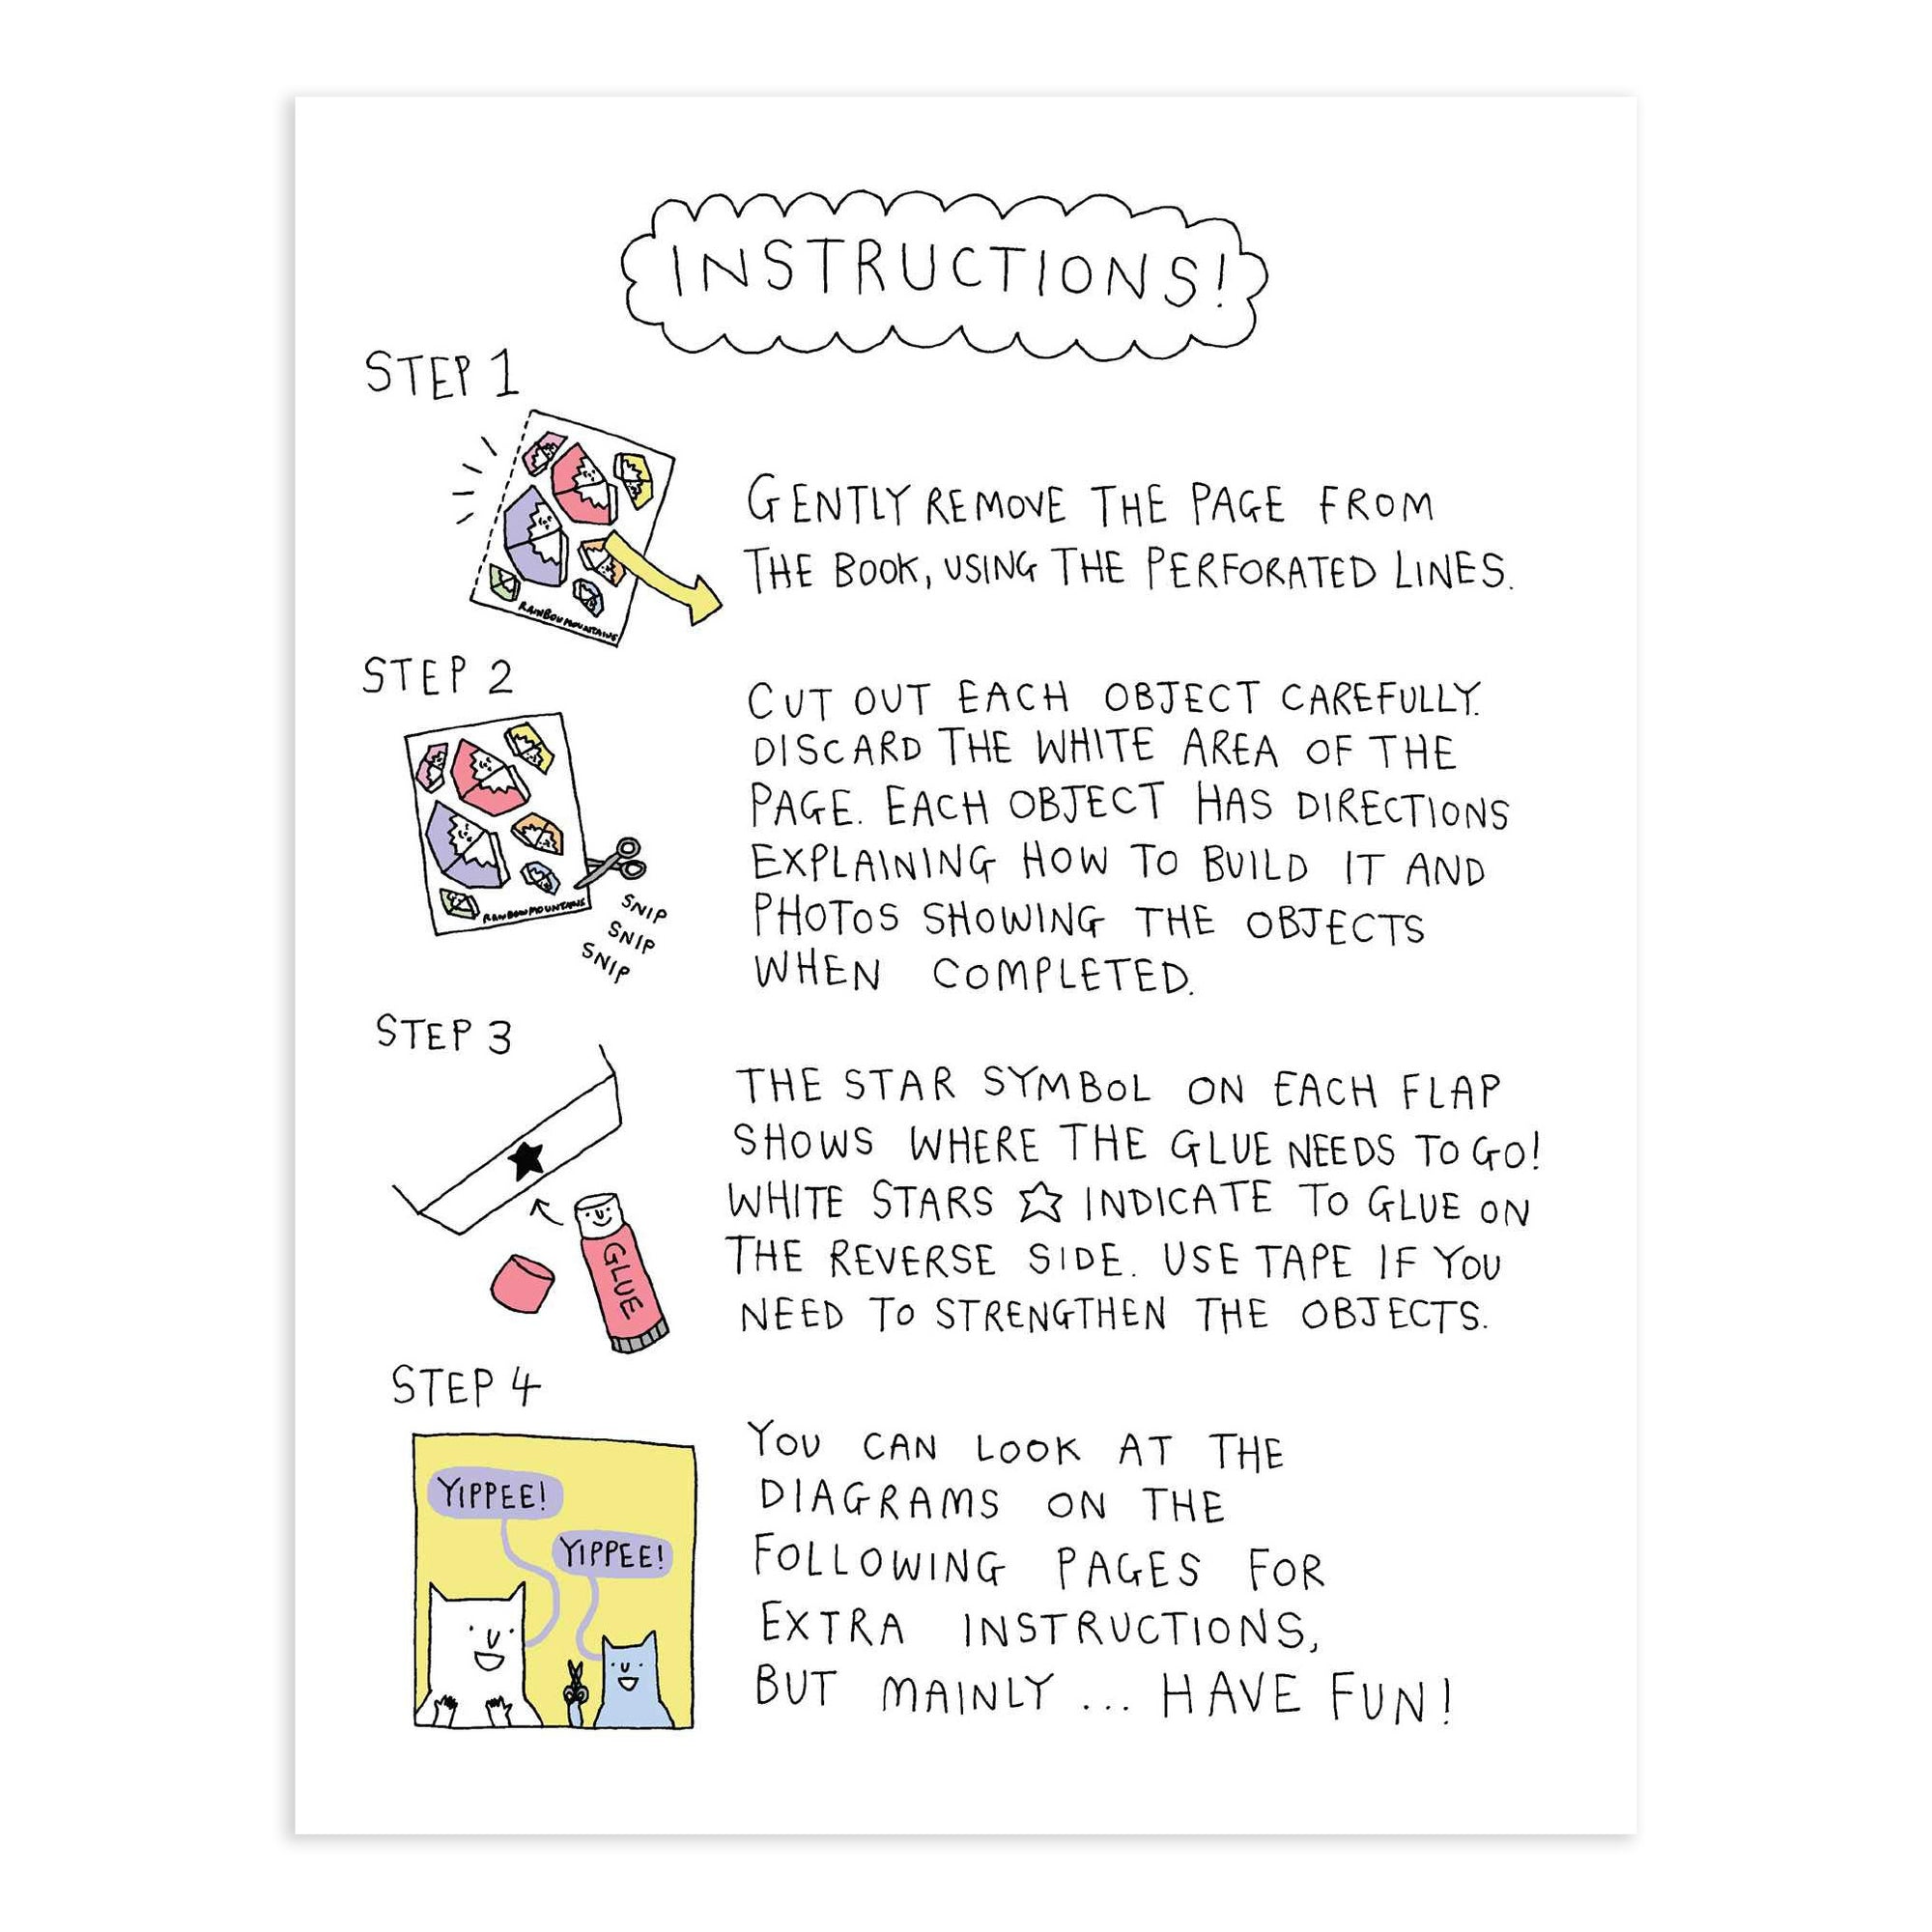 INSTRUCTIONS!
STEP 1
RAINBOW MOUNTAINS
GENTLY REMOVE THE PAGE FROM
THE BOOK, USING THE PERFORATED LINES.
STEP 2
RAINBOW MOUNTAINS
SNIP
SNIP
SNIP
CUT OUT EACH OBJECT CAREFULLY.
DISCARD THE WHITE AREA OF THE
PAGE. EACH OBJECT HAS DIRECTIONS
EXPLAINING HOW TO BUILD IT AND
PHOTOS SHOWING THE OBJECTS
WHEN COMPLETED.
STEP 3
GLUE
THE STAR SYMBOL ON EACH FLAP
SHOWS WHERE THE GLUE NEEDS TO GO!
WHITE STARS ☆ INDICATE TO GLUE ON
THE REVERSE SIDE. USE TAPE IF YOU
NEED TO STRENGTHEN THE OBJECTS.
STEP 4
YIPPEE!
YIPPEE!
YOU CAN LOOK AT THE
DIAGRAMS ON THE
FOLLOWING PAGES FOR
EXTRA INSTRUCTIONS,
BUT MAINLY ... HAVE FUN!